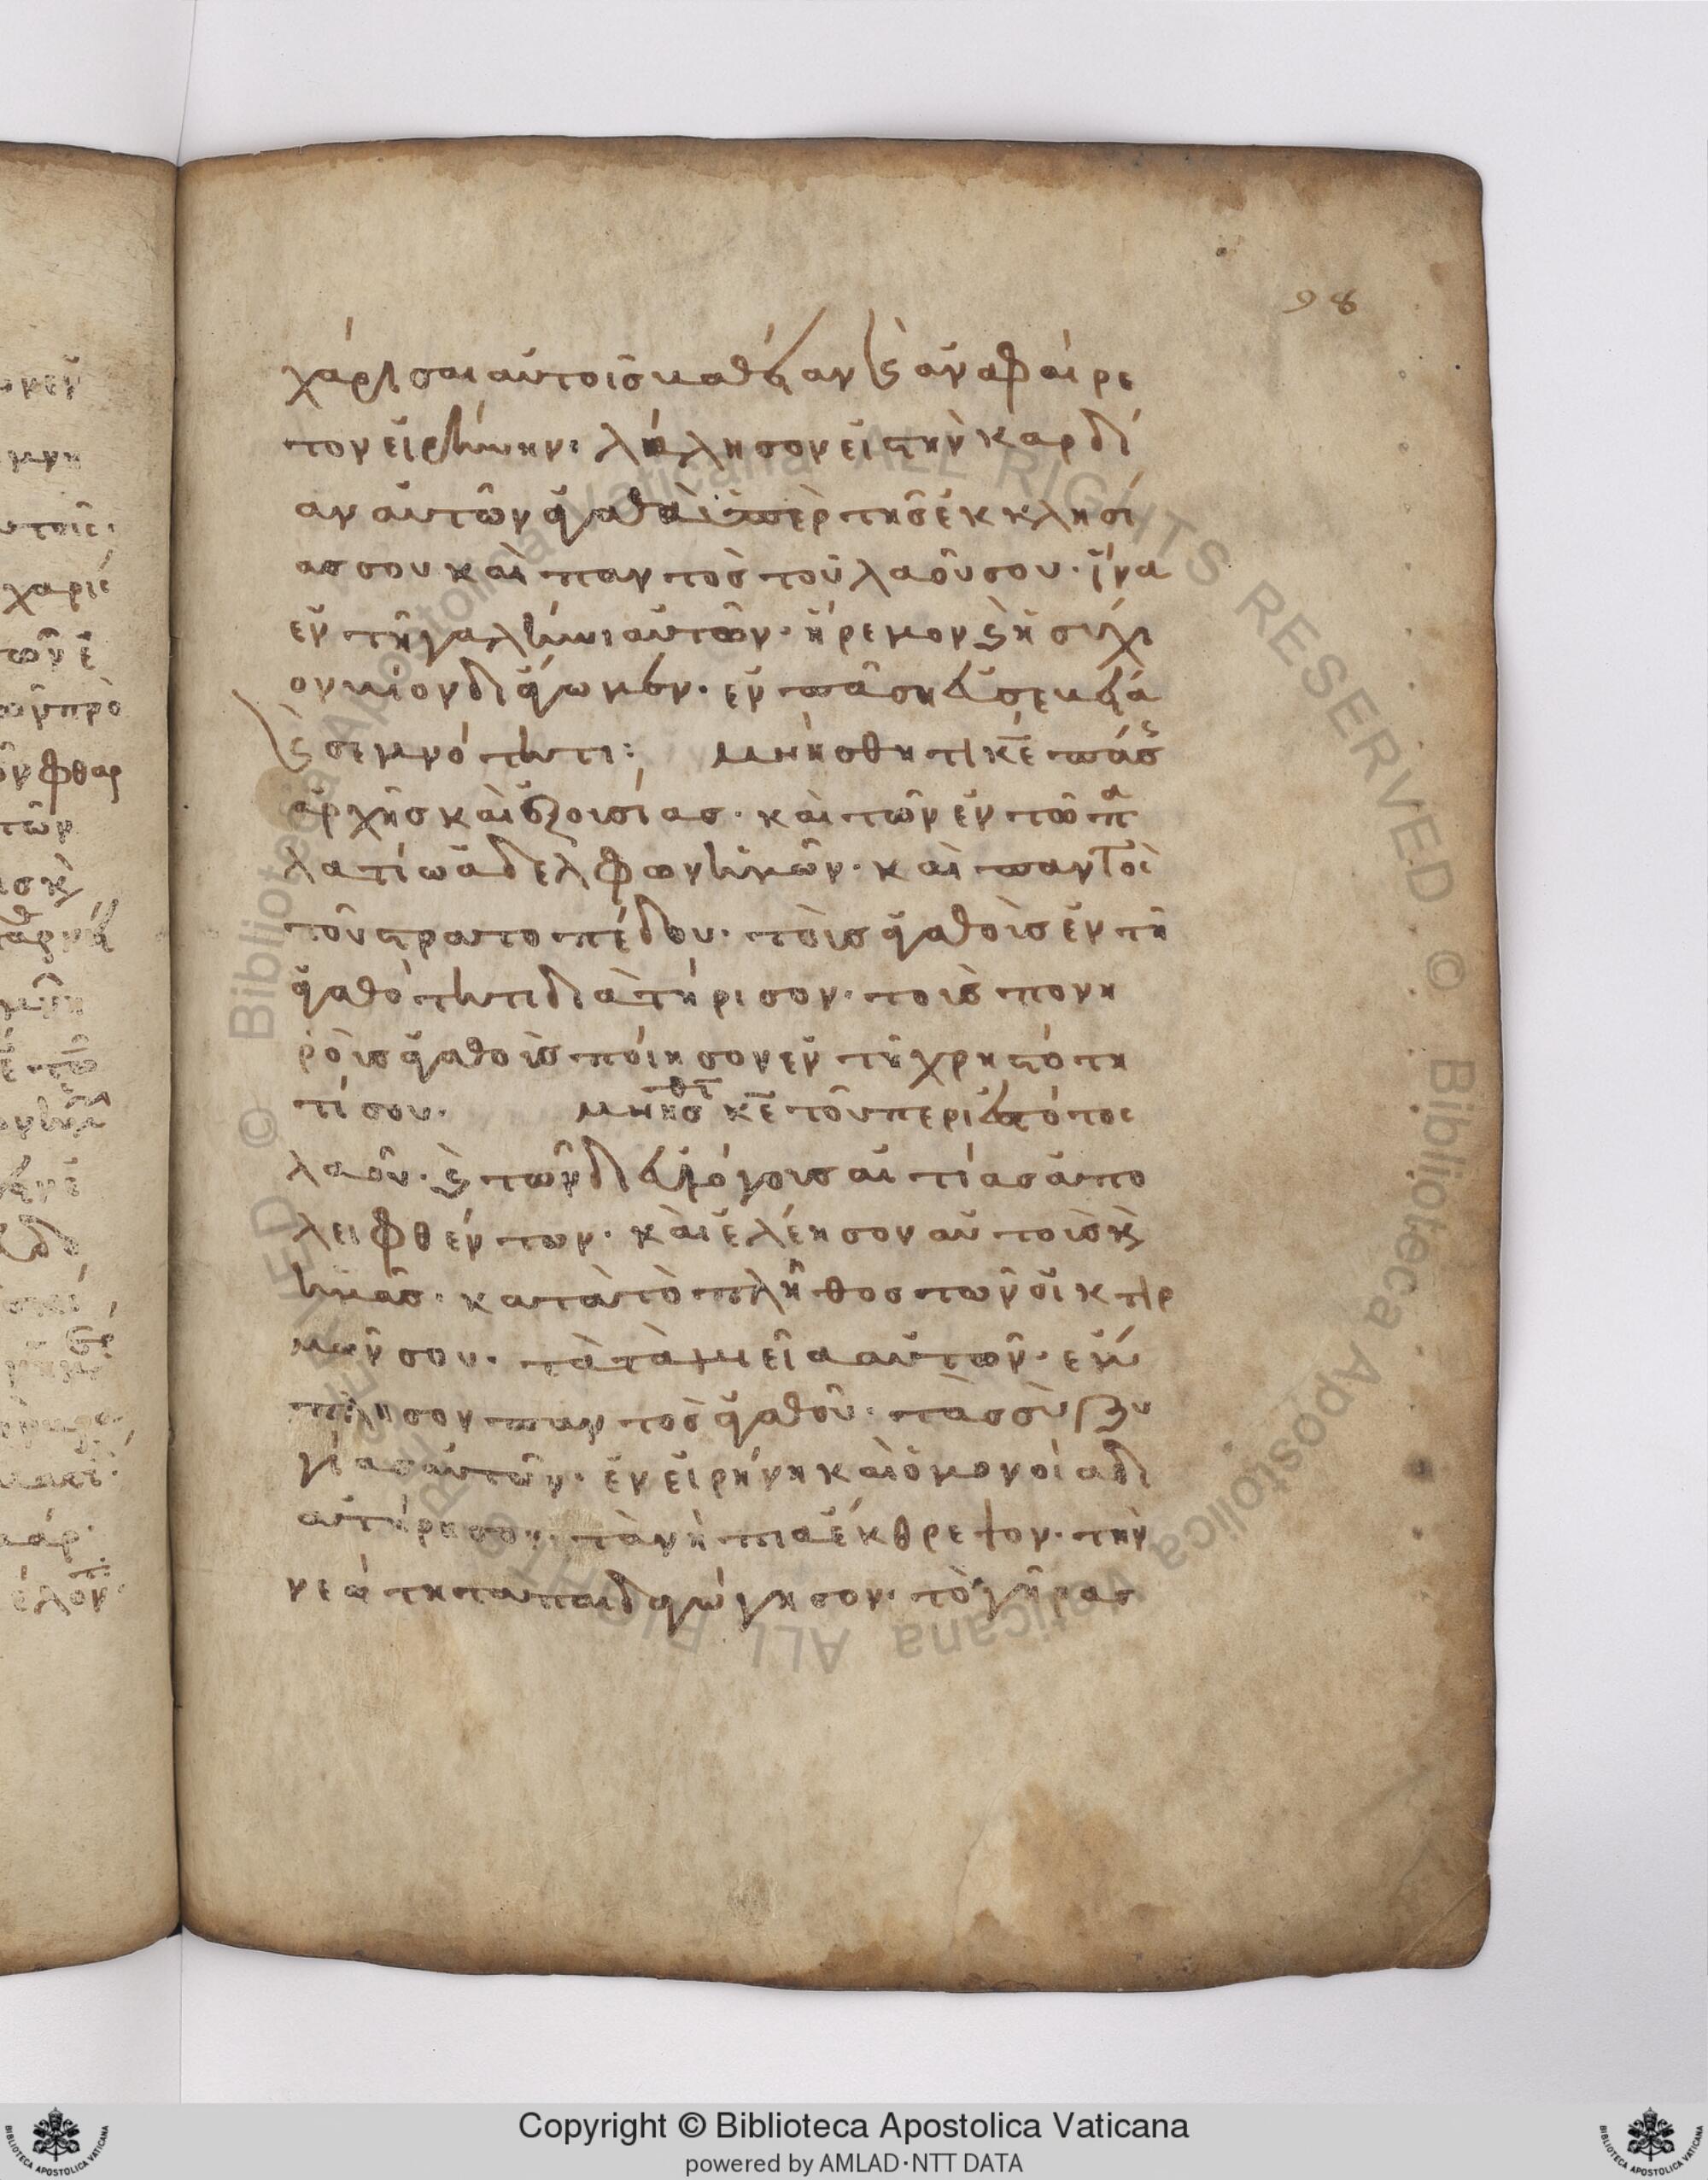 98
χάρισαι αὐτοῖς βαθεῖαν ϗ ἀναφαίρε
τον εἰρήνην· λάλησον εἰς τὴν καρδί
αν αὐτῶν ἀγαθὰ ὑπὲρ τῆς ἐκκλησί
ας σου καὶ παντὸς τοῦ λαοῦ σου· ἵνα
ἐν τῇ γαλήνῃ αὐτῶν· ἤρεμον ϗ ἡσύχι
ον βίον διάγωμεν· ἐν πάσῃ εὐσεβείᾳ
ϗ σεμνότητι: μνήσθητι κ̅ε̅ πάσ
ἀρχῆς καὶ ἐξουσίας· καὶ τῶν ἐν τῷ πα
λατίῳ ἀδελφῶν ἡμῶν· καὶ παντὸ
τοῦ στρατοπέδου· τοὺς ἀγαθοὺς ἐν τῇ
ἀγαθότητι διατήρισον· τοὺς πονη
ροὺς ἀγαθοὺς ποίησον ἐν τῇ χρηστότη
τί σου· μνησθτ κ̅ε̅ τοῦ περιεστότος
λαοῦ· ϗ τῶν δι εὐλόγους αἰτίας ἀπο
λειφθέντων· καὶ ἐλέησον αὐτοὺς ϗ
ἡμᾶς· κατὰ τὸ πλῆθος τῶν οἰκτιρ
μῶν σου· τὰ ταμεῖα αὐτῶν· ἔμ
πλησον παντὸς ἀγαθοῦ· τὰς συζυ
γίας αὐτῶν· ἐν εἰρήνῃ καὶ ὁμονοίᾳ δι
ατήρησον· τὰ νήπια ἔκθρεψον· τὴν
νεότητα παιδαγώγησον· τὸ γῆρας
Copyright © Biblioteca Apostolica Vaticana
powered by AMLAD·NTT DATA